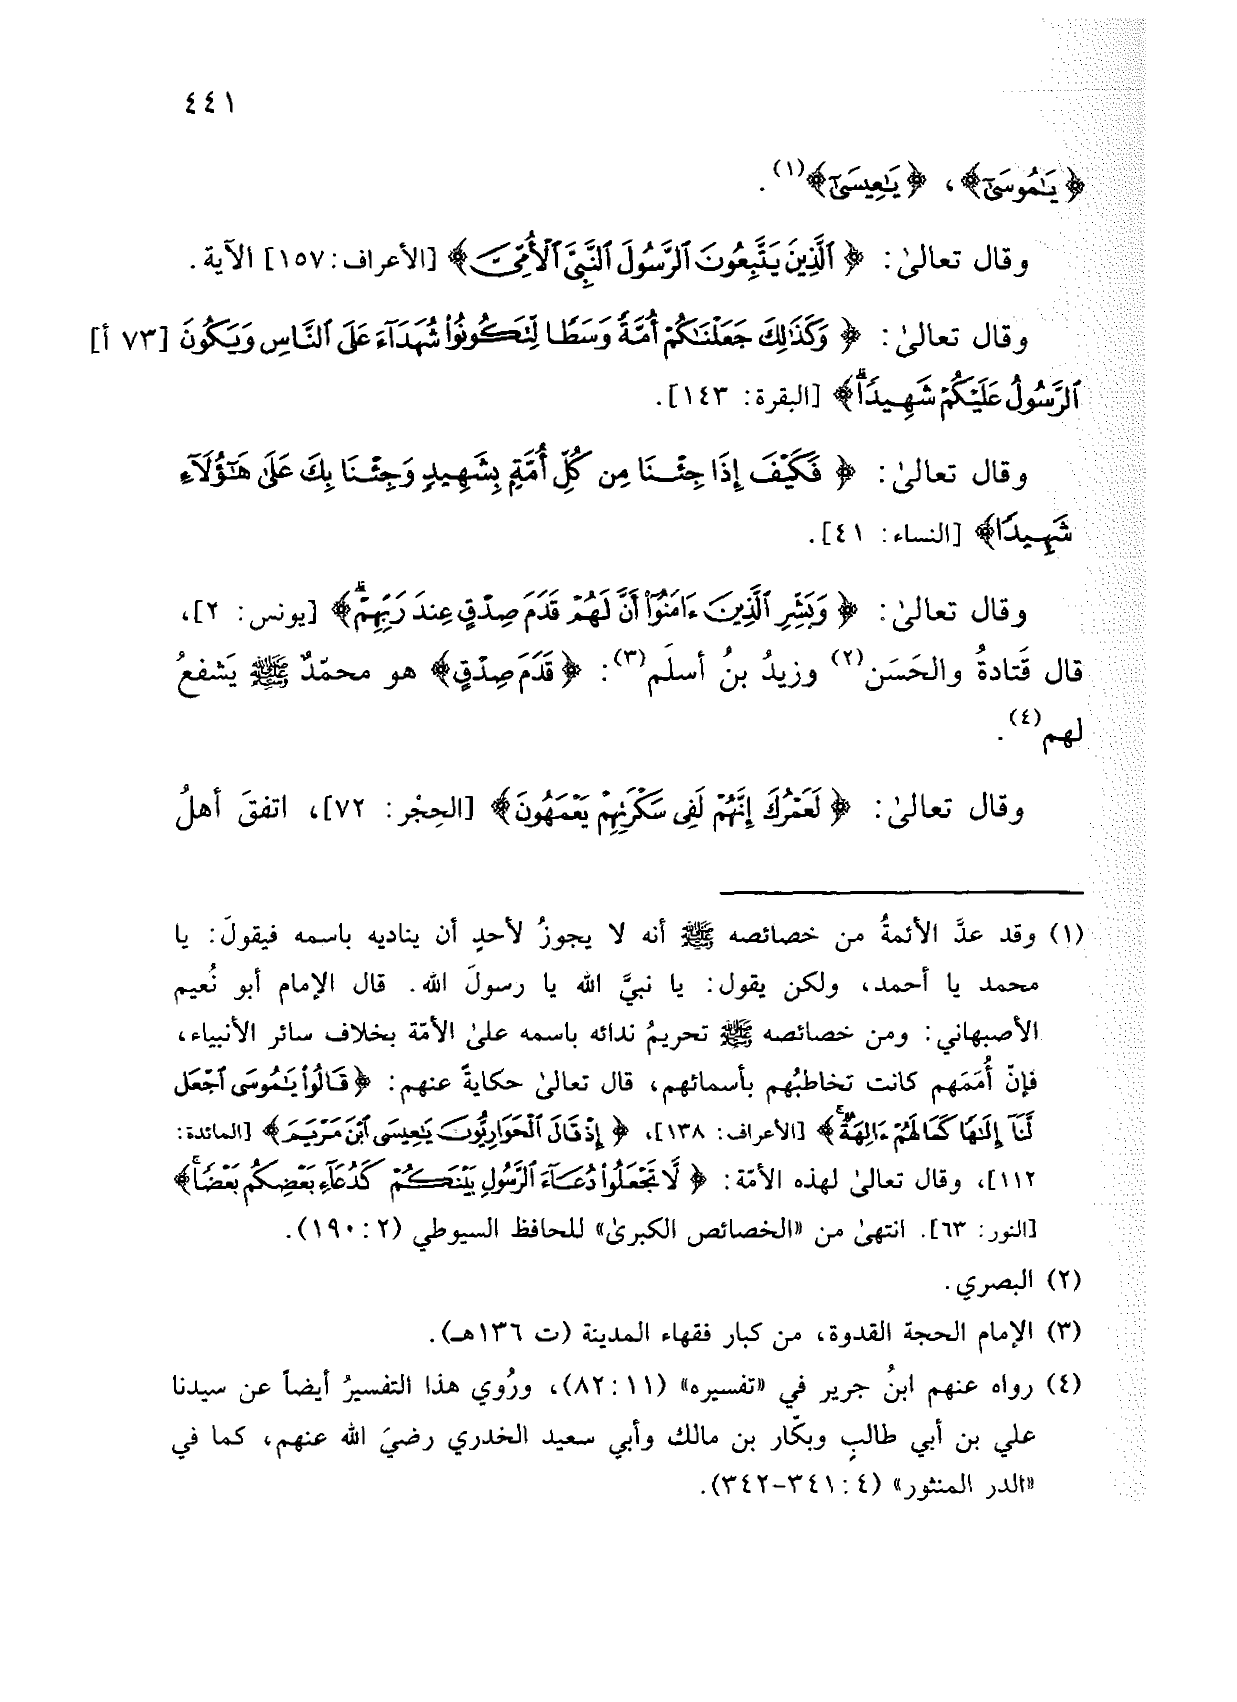 ٤٤١
﴿يَٰمُوسَىٰٓ﴾، ﴿يَٰعِيسَىٰٓ﴾(١).
وقال تعالىٰ: ﴿ٱلَّذِينَ يَتَّبِعُونَ ٱلرَّسُولَ ٱلنَّبِىَّ ٱلْأُمِّىَّ﴾ [الأعراف: ١٥٧] الآية.
وقال تعالىٰ: ﴿وَكَذَٰلِكَ جَعَلْنَٰكُمْ أُمَّةً وَسَطًا لِّتَكُونُوا۟ شُهَدَآءَ عَلَى ٱلنَّاسِ وَيَكُونَ [٧٣ أ]
ٱلرَّسُولُ عَلَيْكُمْ شَهِيدًاۗ﴾ [البقرة: ١٤٣].
وقال تعالىٰ: ﴿فَكَيْفَ إِذَا جِئْنَا مِن كُلِّ أُمَّةٍۭ بِشَهِيدٍ وَجِئْنَا بِكَ عَلَىٰ هَٰٓؤُلَآءِ
شَهِيدًا﴾ [النساء: ٤١].
وقال تعالىٰ: ﴿وَبَشِّرِ ٱلَّذِينَ ءَامَنُوٓا۟ أَنَّ لَهُمْ قَدَمَ صِدْقٍ عِندَ رَبِّهِمْۗ﴾ [يونس: ٢]،
قال قَتادةُ والحَسَن(٢) وزيدُ بنُ أسلَم(٣): ﴿قَدَمَ صِدْقٍ﴾ هو محمّدٌ ﷺ يَشفعُ
لهم(٤).
وقال تعالىٰ: ﴿لَعَمْرُكَ إِنَّهُمْ لَفِى سَكْرَتِهِمْ يَعْمَهُونَ﴾ [الحِجْر: ٧٢]، اتفقَ أهلُ
(١) وقد عدَّ الأئمةُ من خصائصه ﷺ أنه لا يجوزُ لأحدٍ أن يناديه باسمه فيقولَ: يا
محمد يا أحمد، ولكن يقول: يا نبيَّ الله يا رسولَ الله. قال الإمام أبو نُعيم
الأصبهاني: ومن خصائصه ﷺ تحريمُ ندائه باسمه علىٰ الأمّة بخلاف سائر الأنبياء،
فإنّ أُمَمَهم كانت تخاطبُهم بأسمائهم، قال تعالىٰ حكايةً عنهم: ﴿قَالُوا۟ يَٰمُوسَى ٱجْعَل
لَّنَآ إِلَٰهًا كَمَا لَهُمْ ءَالِهَةٌۚ﴾ [الأعراف: ١٣٨]، ﴿إِذْ قَالَ ٱلْحَوَارِيُّونَ يَٰعِيسَى ٱبْنَ مَرْيَمَ﴾ [المائدة:
١١٢]، وقال تعالىٰ لهذه الأمّة: ﴿لَّا تَجْعَلُوا۟ دُعَآءَ ٱلرَّسُولِ بَيْنَكُمْ كَدُعَآءِ بَعْضِكُم بَعْضًاۚ﴾
[النور: ٦٣]. انتهىٰ من «الخصائص الكبرىٰ» للحافظ السيوطي (٢: ١٩٠).
(٢) البصري.
(٣) الإمام الحجة القدوة، من كبار فقهاء المدينة (ت ١٣٦هـ).
(٤) رواه عنهم ابنُ جرير في «تفسيره» (١١: ٨٢)، ورُوي هذا التفسيرُ أيضاً عن سيدنا
علي بن أبي طالبٍ وبكّار بن مالك وأبي سعيد الخدري رضيَ الله عنهم، كما في
«الدر المنثور» (٤: ٣٤١-٣٤٢).